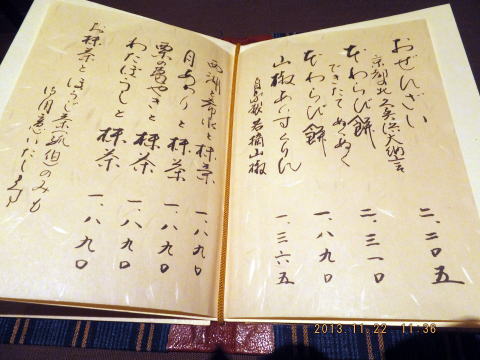 おぜんざい 二、二〇五
京都北
本わらび餅 二、三一〇
できたてぬくぬく
本わらび餅 一、八九〇
山椒あいすくりん 一、三六五
若摘山椒
と抹茶 一、八九〇
月あかりと抹茶 一、八九〇
栗の
やきと抹茶 一、八九〇
わたぼうしと抹茶 一、八九〇
お抹茶とほうじ茶
のみも
御用意いたします
2013.11.22 11:36